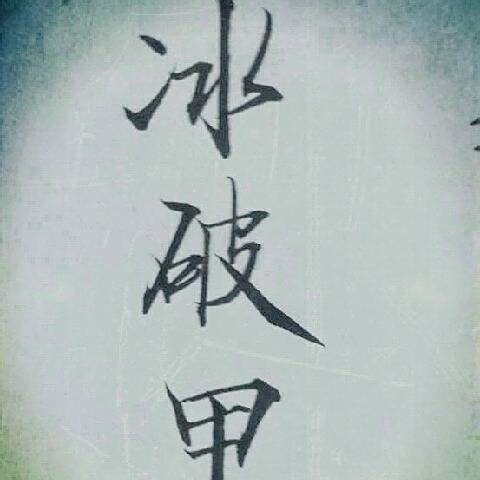 冰破甲